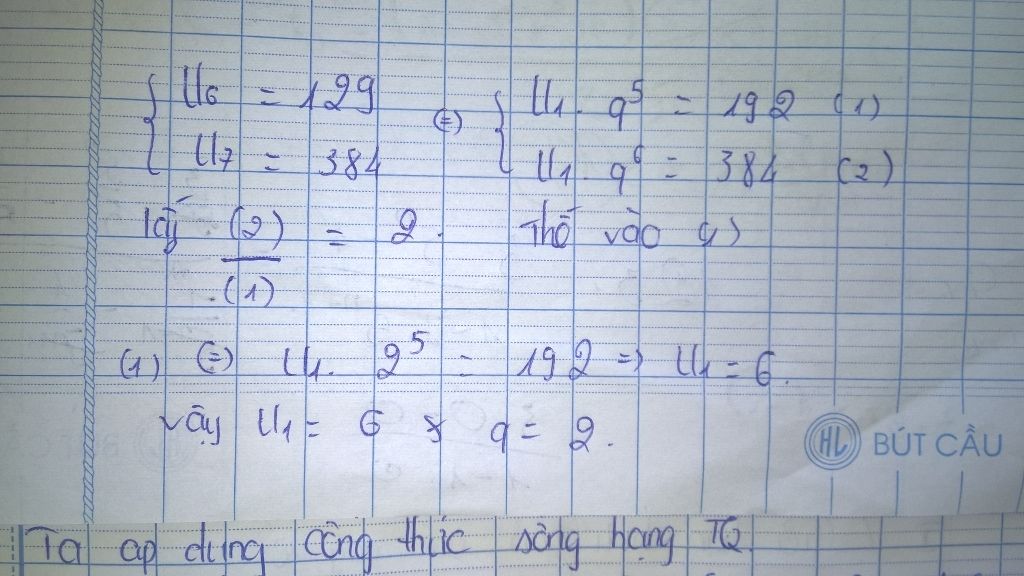 U6 = 129 (=) U1 . q^5 = 192 (1)
U7 = 384 U1 . q^6 = 384 (2)
lấy (2)/(1) = 2. Thế vào (1)
(1) (=) U1. 2^5 = 192 => U1 = 6.
vậy U1 = 6 & q = 2.
HL BÚT CẦU
Ta ap dụng công thức sống hạng TQ